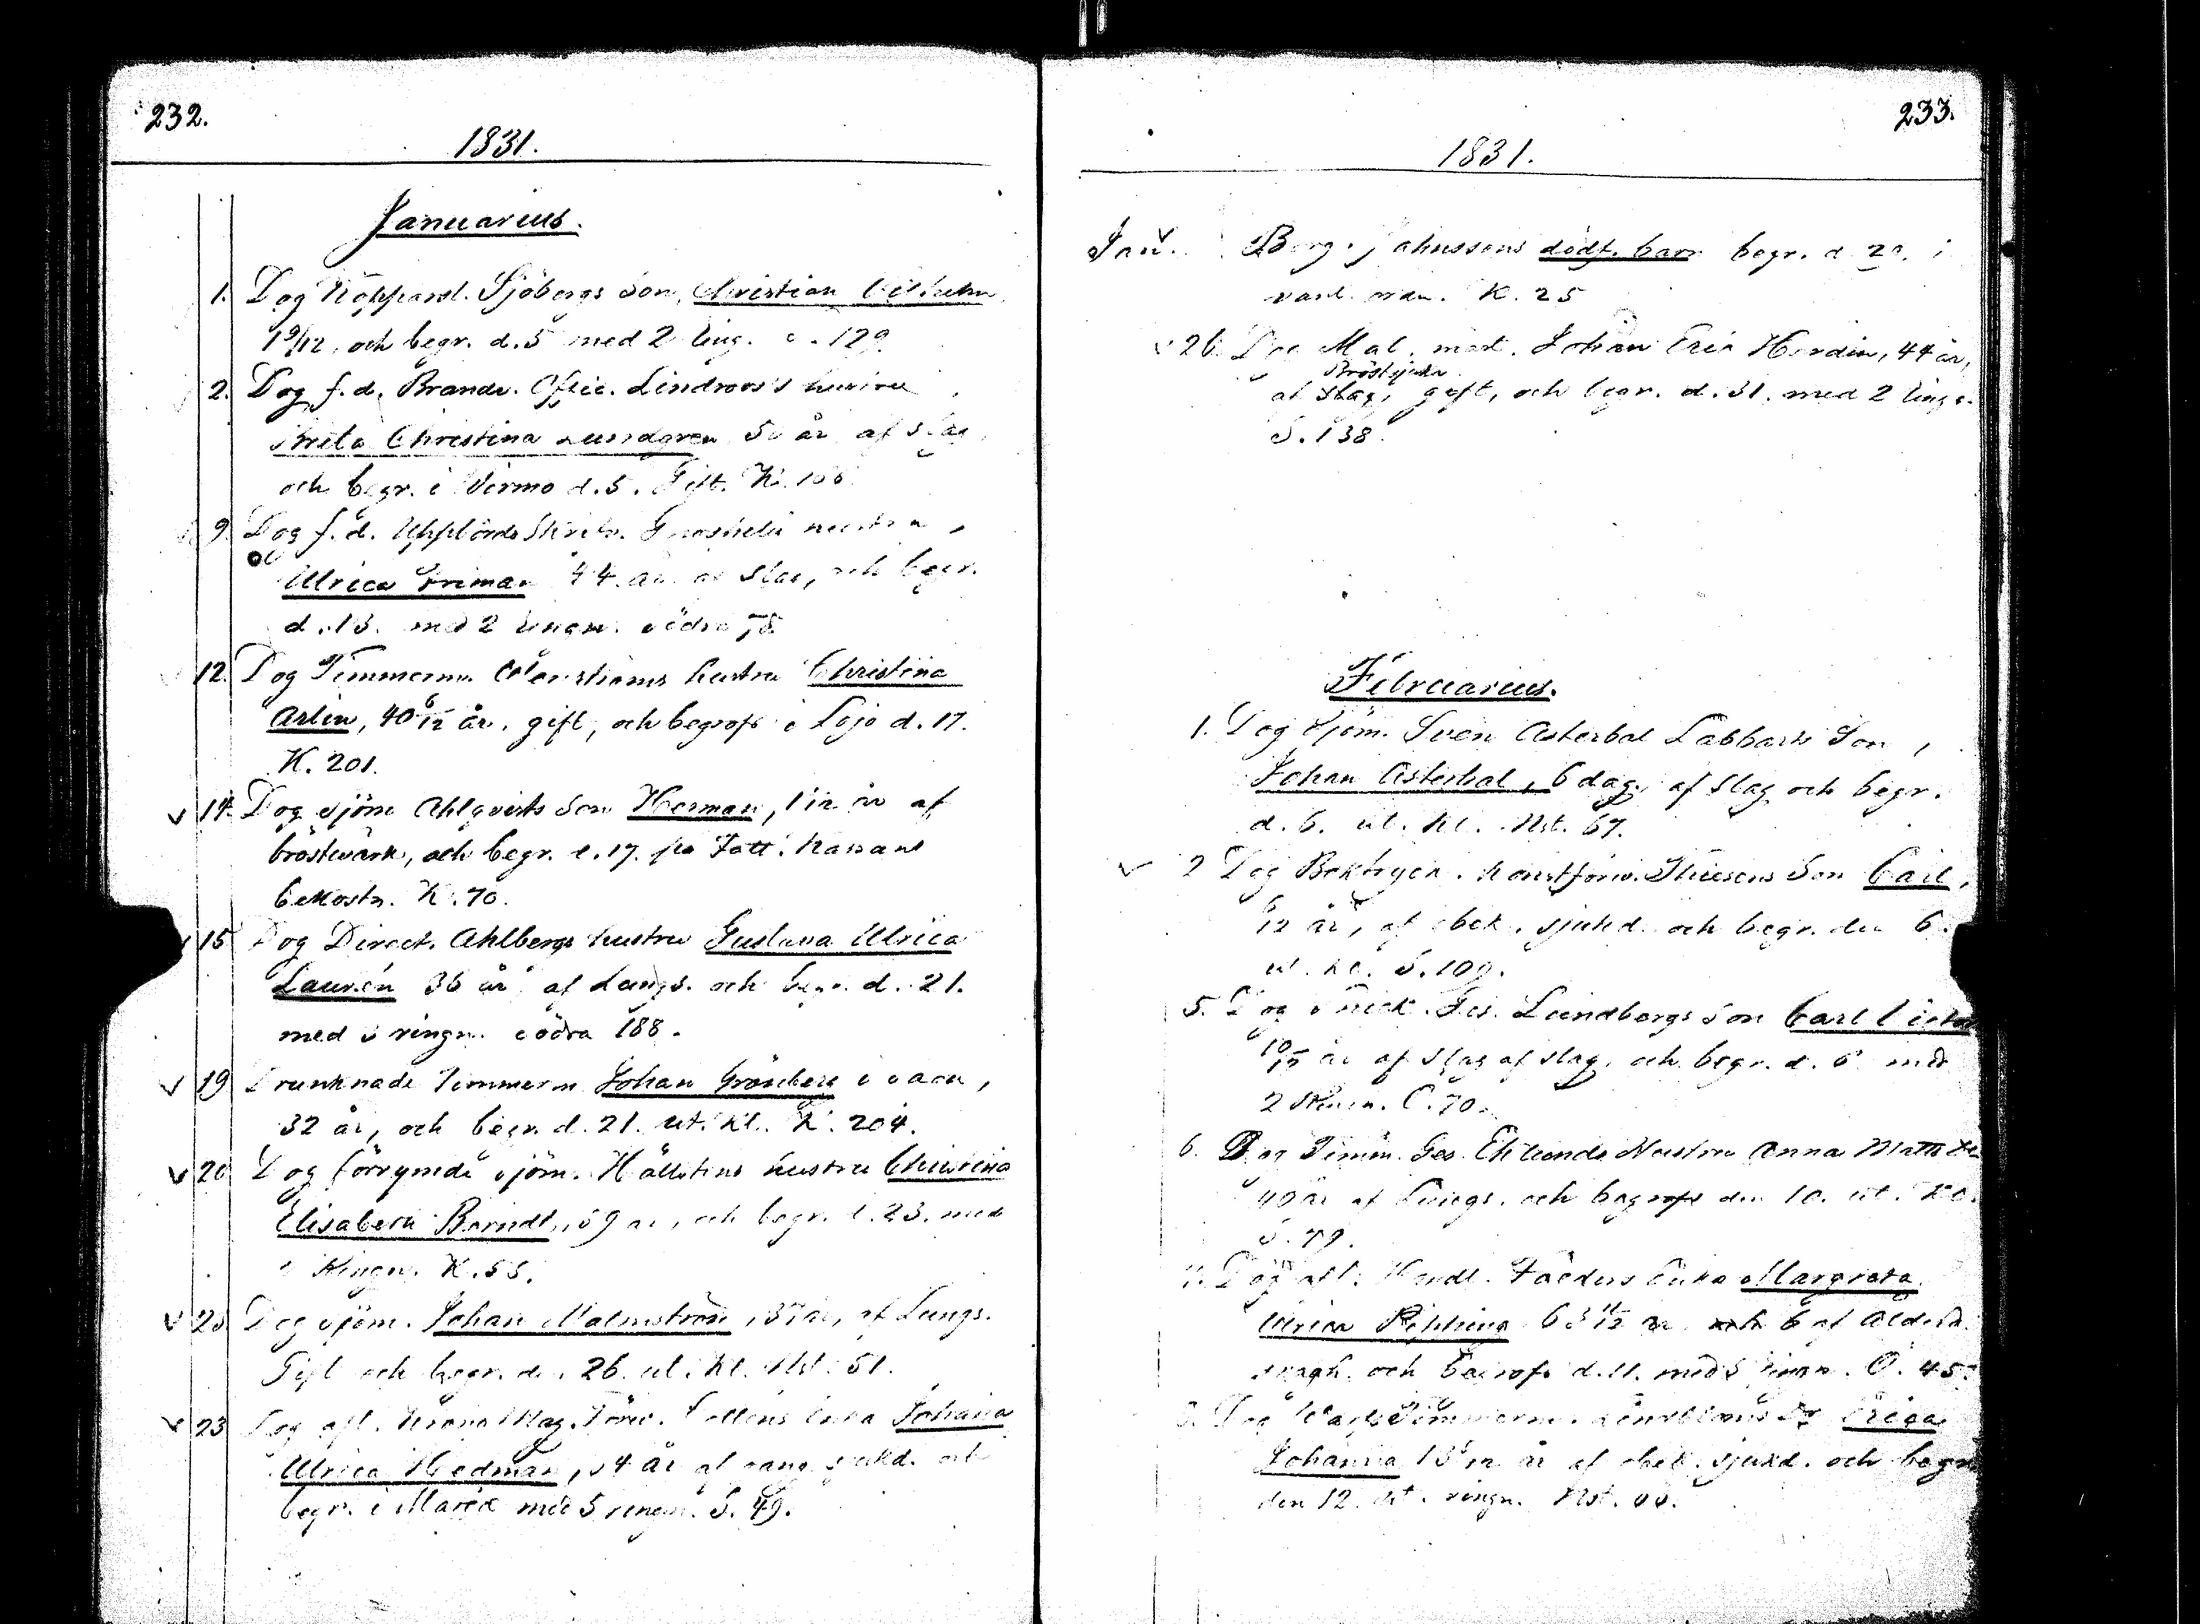 232.
1831.
Januarius.
1. Dog Kopparsl. Sjöbergs Son, Christian Vilhelm
1 9/12, och begr. d. 5 med 2 ling. 129
2. Dog f. d. Brandv. Offic. Lindroos's hustru
Brita Christina Lundgren 50 år af slag
och begr. i Virmo d. 5. Gift. K. 106
9. Dog f. d. Uppbörds Skrifv. hustru,
Ulrica Friman 44 år af slag, och begr.
d. 13. med 2 ringn. södra 78
12. Dog Timmerm. hustru Christina
Arlin, 40 6/12 år, gift, och begrofs i Lojo d. 17.
K. 201.
14. Dog Sjöm Ahlqvists Son Herman, 1 /12 år af
bröstvärk, och begr. d. 17. på Fatt. Kassans
bekostn. K. 70.
15 Dog Direct. Ahlbergs hustru Gustava Ulrica
Laurén 36 år af Lungs. och begr. d. 21.
med 3 ringn. södra 188.
19 Drunknade Timmerm Johan Grönberg,
32 år, och begr. d. 21. ut. kl. K. 204.
20 Dog förrymde Sjöm. Hällstens hustru Christina
Elisabeth Berndt, 59 år, och begr. d. 23. med
Ringn. K. 55.
23 Dog Sjöm. Johan Malmström, 37 år, af Lungs.
Gift och begr. d. 26. ut. kl. Nst. 51.
23 Dog afl. Krono Mag. Förv. enka Johanna
Ulrica Hedman, 54 år af sjukd. och
begr. i Marie med 5 ringn. S. 49.
233.
1831.
Jan. Borg. Johnssons dödf. barn begr. d. 20. i
vanl. ordn. K. 25
26. Dog Mål. mäst. Johan Eric Hordin, 44 år,
Bröstsjuka
af Slag, gift, och begr. d. 31. med 2 ling.
S. 138.
Februarius.
1. Dog Sjöm. Sven Asterbal Labbarts Son,
Johan Asterbal, 6 dag. af slag och begr.
d. 6. ut. kl. Nst. 67.
2 Dog Boktryck. konstförv. Thusens Son Carl,
6/12 år, af obek. sjukd. och begr. den 6.
ut. kl. S. 109.
5. Dog Snick. Ges. Lundbergs Son Carl Victor
10/12 år af slag af slag, och begr. d. 6 med
2 Ringn. C. 70.
6. Dog Timm. Ges. Ehlunds Hustru Anna Matts
40 år af Lungs. och begrofs den 10. ut. kl.
S. 79.
Dog afl. Handl. Enka Margreta
Ulrica Pipping 63 11/12 år och 6 af Ålderd.
svagh. och begrofs d. 11. med 5 ringn. O. 45.
Dog Timmerm. Lindbloms Dr Erica
Johanna 13 /12 år af obek. sjukd. och begr
den 12. ut. ringn. Nst.